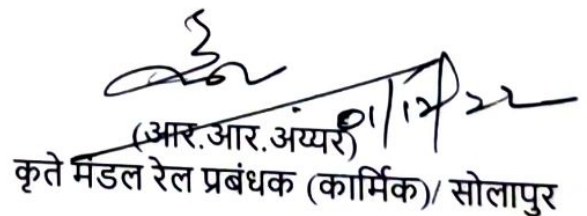 01/12/22
(आर.आर.अय्यर)
कृते मंडल रेल प्रबंधक (कार्मिक)/ सोलापुर